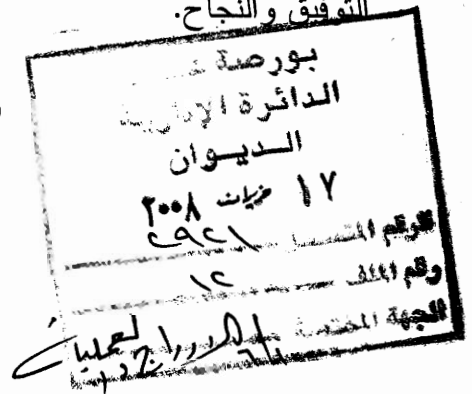 التوفيق والنجاح.
بورصة
الدائرة الإدارية
الديوان
١٧ حزيران ٢٠٠٨
الرقم المتسلسل ٢٩٢١
رقم الملف ١٢
الجهة المختصة الادراج والعمليات